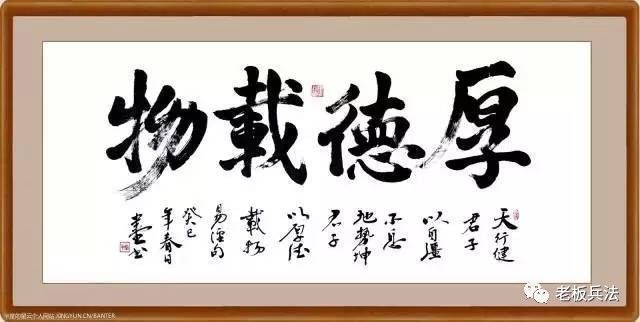 厚德載物
天行健
君子
以自彊
不息
地勢坤
君子
以厚德
載物
易經句
癸巳
年春日
老板兵法
XINGYUN.CN/BANTER